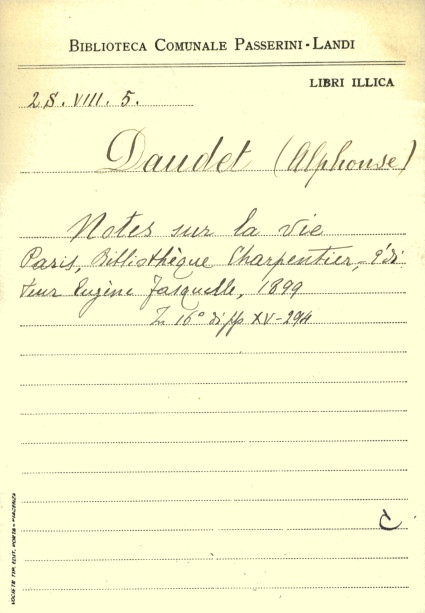 BIBLIOTECA COMUNALE PASSERINI-LANDI
LIBRI ILLICA
2S. VIII. 5.
Daudet (Alphonse)
Notes sur la vie
Paris, Bibliothèque Charpentier, - Édi
teur Eugène Fasquelle, 1899
In 16° di pp XV-294
C